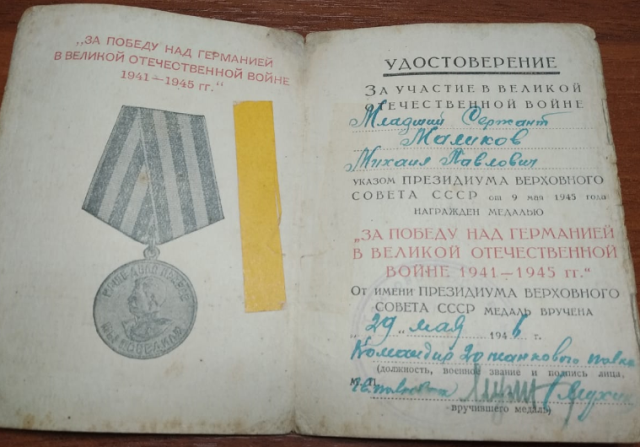 „ЗА ПОБЕДУ НАД ГЕРМАНИЕЙ
В ВЕЛИКОЙ ОТЕЧЕСТВЕННОЙ ВОЙНЕ
1941—1945 гг."
НАШЕ ДЕЛО ПРАВОЕ
МЫ ПОБЕДИЛИ
УДОСТОВЕРЕНИЕ
ЗА УЧАСТИЕ В ВЕЛИКОЙ
ОТЕЧЕСТВЕННОЙ ВОЙНЕ
Младший Сержант
Маликов
Михаил Павлович
УКАЗОМ ПРЕЗИДИУМА ВЕРХОВНОГО
СОВЕТА СССР от 9 мая 1945 года
НАГРАЖДЕН МЕДАЛЬЮ
„ЗА ПОБЕДУ НАД ГЕРМАНИЕЙ
В ВЕЛИКОЙ ОТЕЧЕСТВЕННОЙ
ВОЙНЕ 1941—1945 гг."
ОТ ИМЕНИ ПРЕЗИДИУМА ВЕРХОВНОГО
СОВЕТА СССР МЕДАЛЬ ВРУЧЕНА
„29" мая 1946 г.
Командир 20 танкового полка
(должность, военное звание и подпись лица,
М. П.
вручившего медаль)